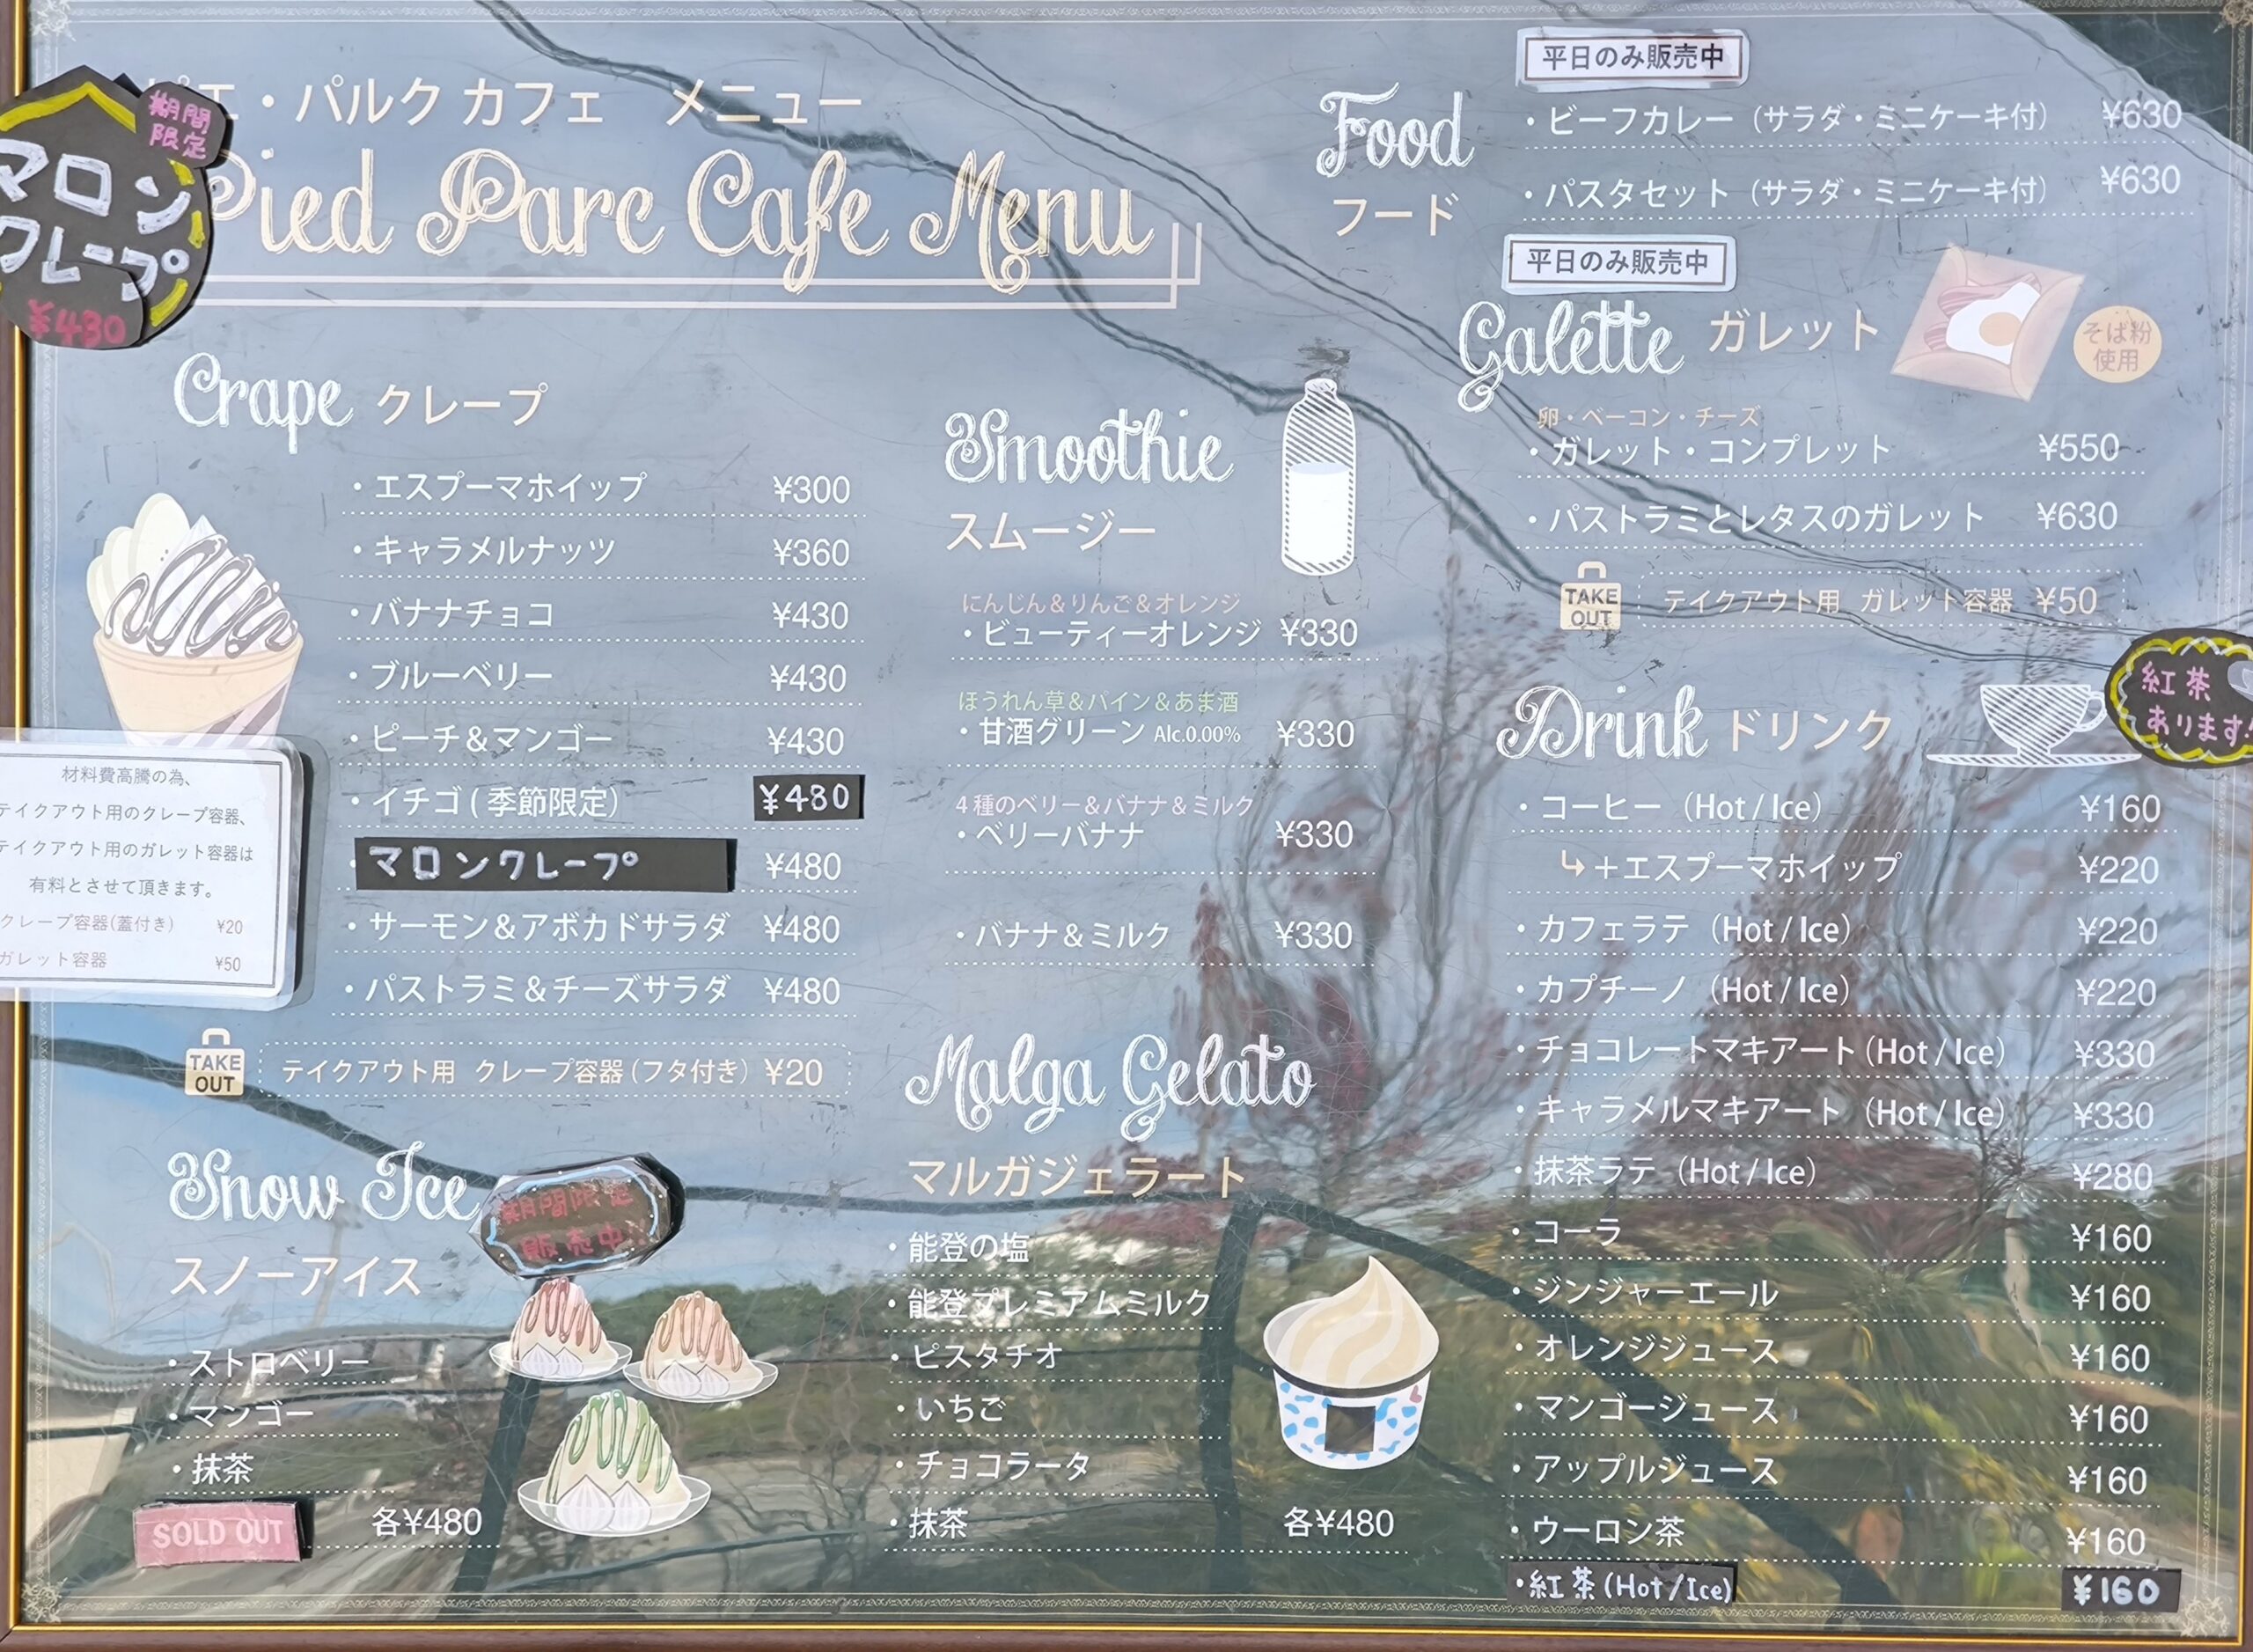 期間
限定
マロン
クレープ
¥430
エ・パルク カフェ　メニュー
Pied Parc Cafe Menu
Crape クレープ
・エスプーマホイップ ¥300
・キャラメルナッツ ¥360
・バナナチョコ ¥430
・ブルーベリー ¥430
・ピーチ&マンゴー ¥430
・イチゴ(季節限定) ¥480
マロンクレープ ¥480
・サーモン&アボカドサラダ ¥480
・パストラミ&チーズサラダ ¥480
TAKE
OUT
テイクアウト用 クレープ容器(フタ付き) ¥20
材料費高騰の為、
テイクアウト用のクレープ容器、
テイクアウト用のガレット容器は
有料とさせて頂きます。
クレープ容器(蓋付き) ¥20
ガレット容器 ¥50
Snow Ice
期間限定
販売中!!
スノーアイス
・ストロベリー
・マンゴー
・抹茶
SOLD OUT
各¥480
Smoothie
スムージー
にんじん&りんご&オレンジ
・ビューティーオレンジ ¥330
ほうれん草&パイン&あま酒
・甘酒グリーン Alc.0.00% ¥330
4種のベリー&バナナ&ミルク
・ベリーバナナ ¥330
・バナナ&ミルク ¥330
Malga Gelato
マルガジェラート
・能登の塩
・能登プレミアムミルク
・ピスタチオ
・いちご
・チョコラータ
・抹茶 各¥480
平日のみ販売中
Food
フード
・ビーフカレー（サラダ・ミニケーキ付） ¥630
・パスタセット（サラダ・ミニケーキ付） ¥630
平日のみ販売中
Galette ガレット
そば粉
使用
卵・ベーコン・チーズ
・ガレット・コンプレット ¥550
・パストラミとレタスのガレット ¥630
TAKE
OUT
テイクアウト用 ガレット容器 ¥50
Drink ドリンク
紅茶
あります!
・コーヒー（Hot / Ice） ¥160
↳＋エスプーマホイップ ¥220
・カフェラテ（Hot / Ice） ¥220
・カプチーノ（Hot / Ice） ¥220
・チョコレートマキアート（Hot / Ice） ¥330
・キャラメルマキアート（Hot / Ice） ¥330
・抹茶ラテ（Hot / Ice） ¥280
・コーラ ¥160
・ジンジャーエール ¥160
・オレンジジュース ¥160
・マンゴージュース ¥160
・アップルジュース ¥160
・ウーロン茶 ¥160
・紅茶(Hot/Ice) ¥160